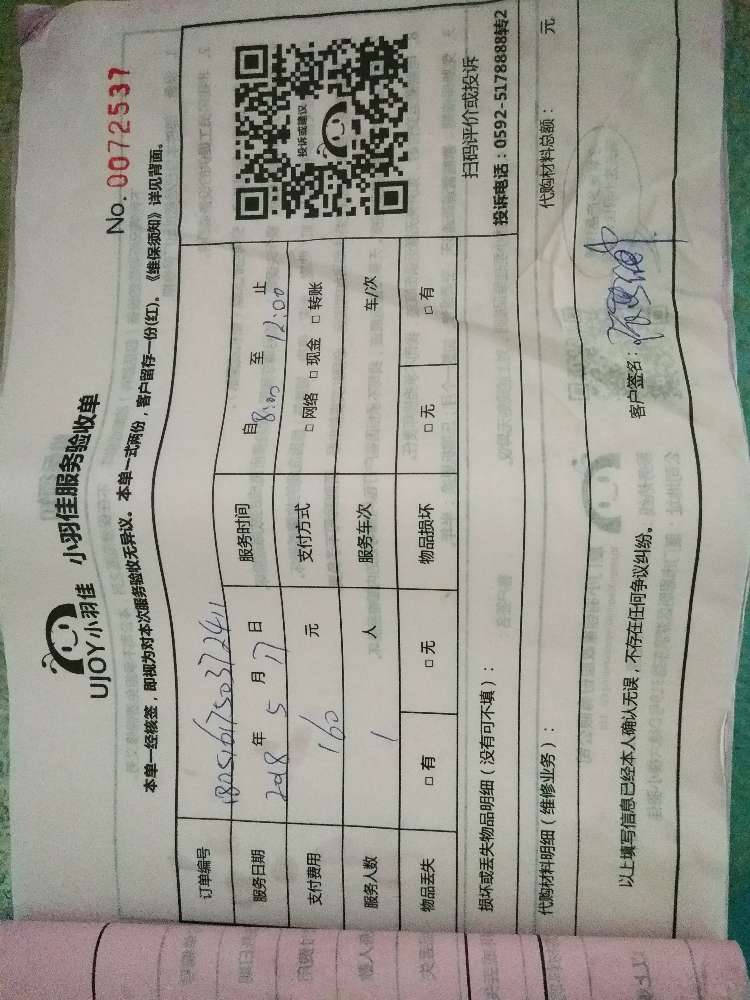 UJOY小羽佳 小羽佳服务验收单
No. 0072537
本单一经核签，即视为对本次服务验收无异议。本单一式两份，客户留存一份(红)。《维保须知》详见背面。
订单编号 18051617503737241
服务日期 2018 年 5 月 17 日 服务时间 自 8:00 至 12:00 止
支付费用 160 元 支付方式 □ 网络 □ 现金 □ 转账
服务人数 1 人 服务车次 车/次
物品丢失 □ 有 □ 无 物品损坏 □ 无 □ 有
投诉或建议
扫码评价或投诉
投诉电话：0592-5178888转2
损坏或丢失物品明细（没有可不填）：
代购材料明细（维修业务）： 代购材料总额： 元
以上填写信息已经本人确认无误，不存在任何争议纠纷。 客户签名：